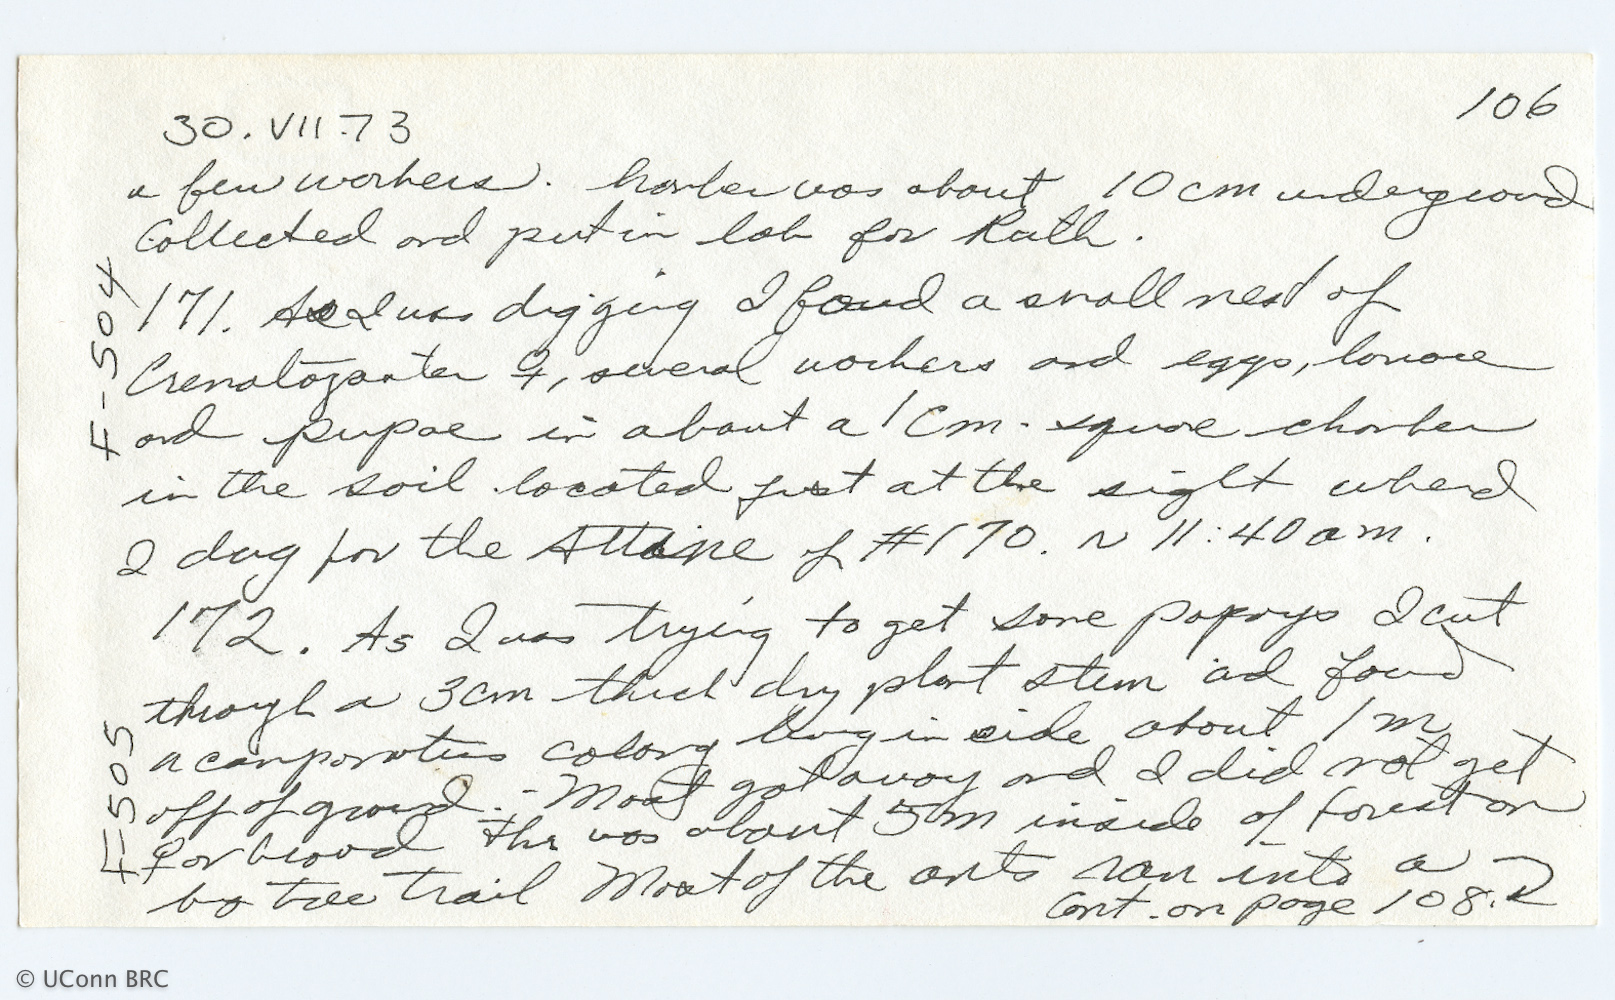 106
30.VII.73
a few workers. Chamber was about 10 cm underground
Collected and put in lab for Ruth.
F-504
171. As I was digging I found a small nest of
Crematogaster ♀, several workers and eggs, larvae
and pupae in about a 1 cm. square chamber
in the soil located just at the sight where
I dug for the Attine of #170. ~ 11:40 am.
172. As I was trying to get some I cut
F-505
through a 3cm thick dry plant stem and found
a camponotus colony living inside about 1 m
off of ground. - Most got away and I did not get
♀ or brood This was about 5m inside of forest on
big tree trail Most of the ants ran into a
Cont. on page 108.
© UConn BRC